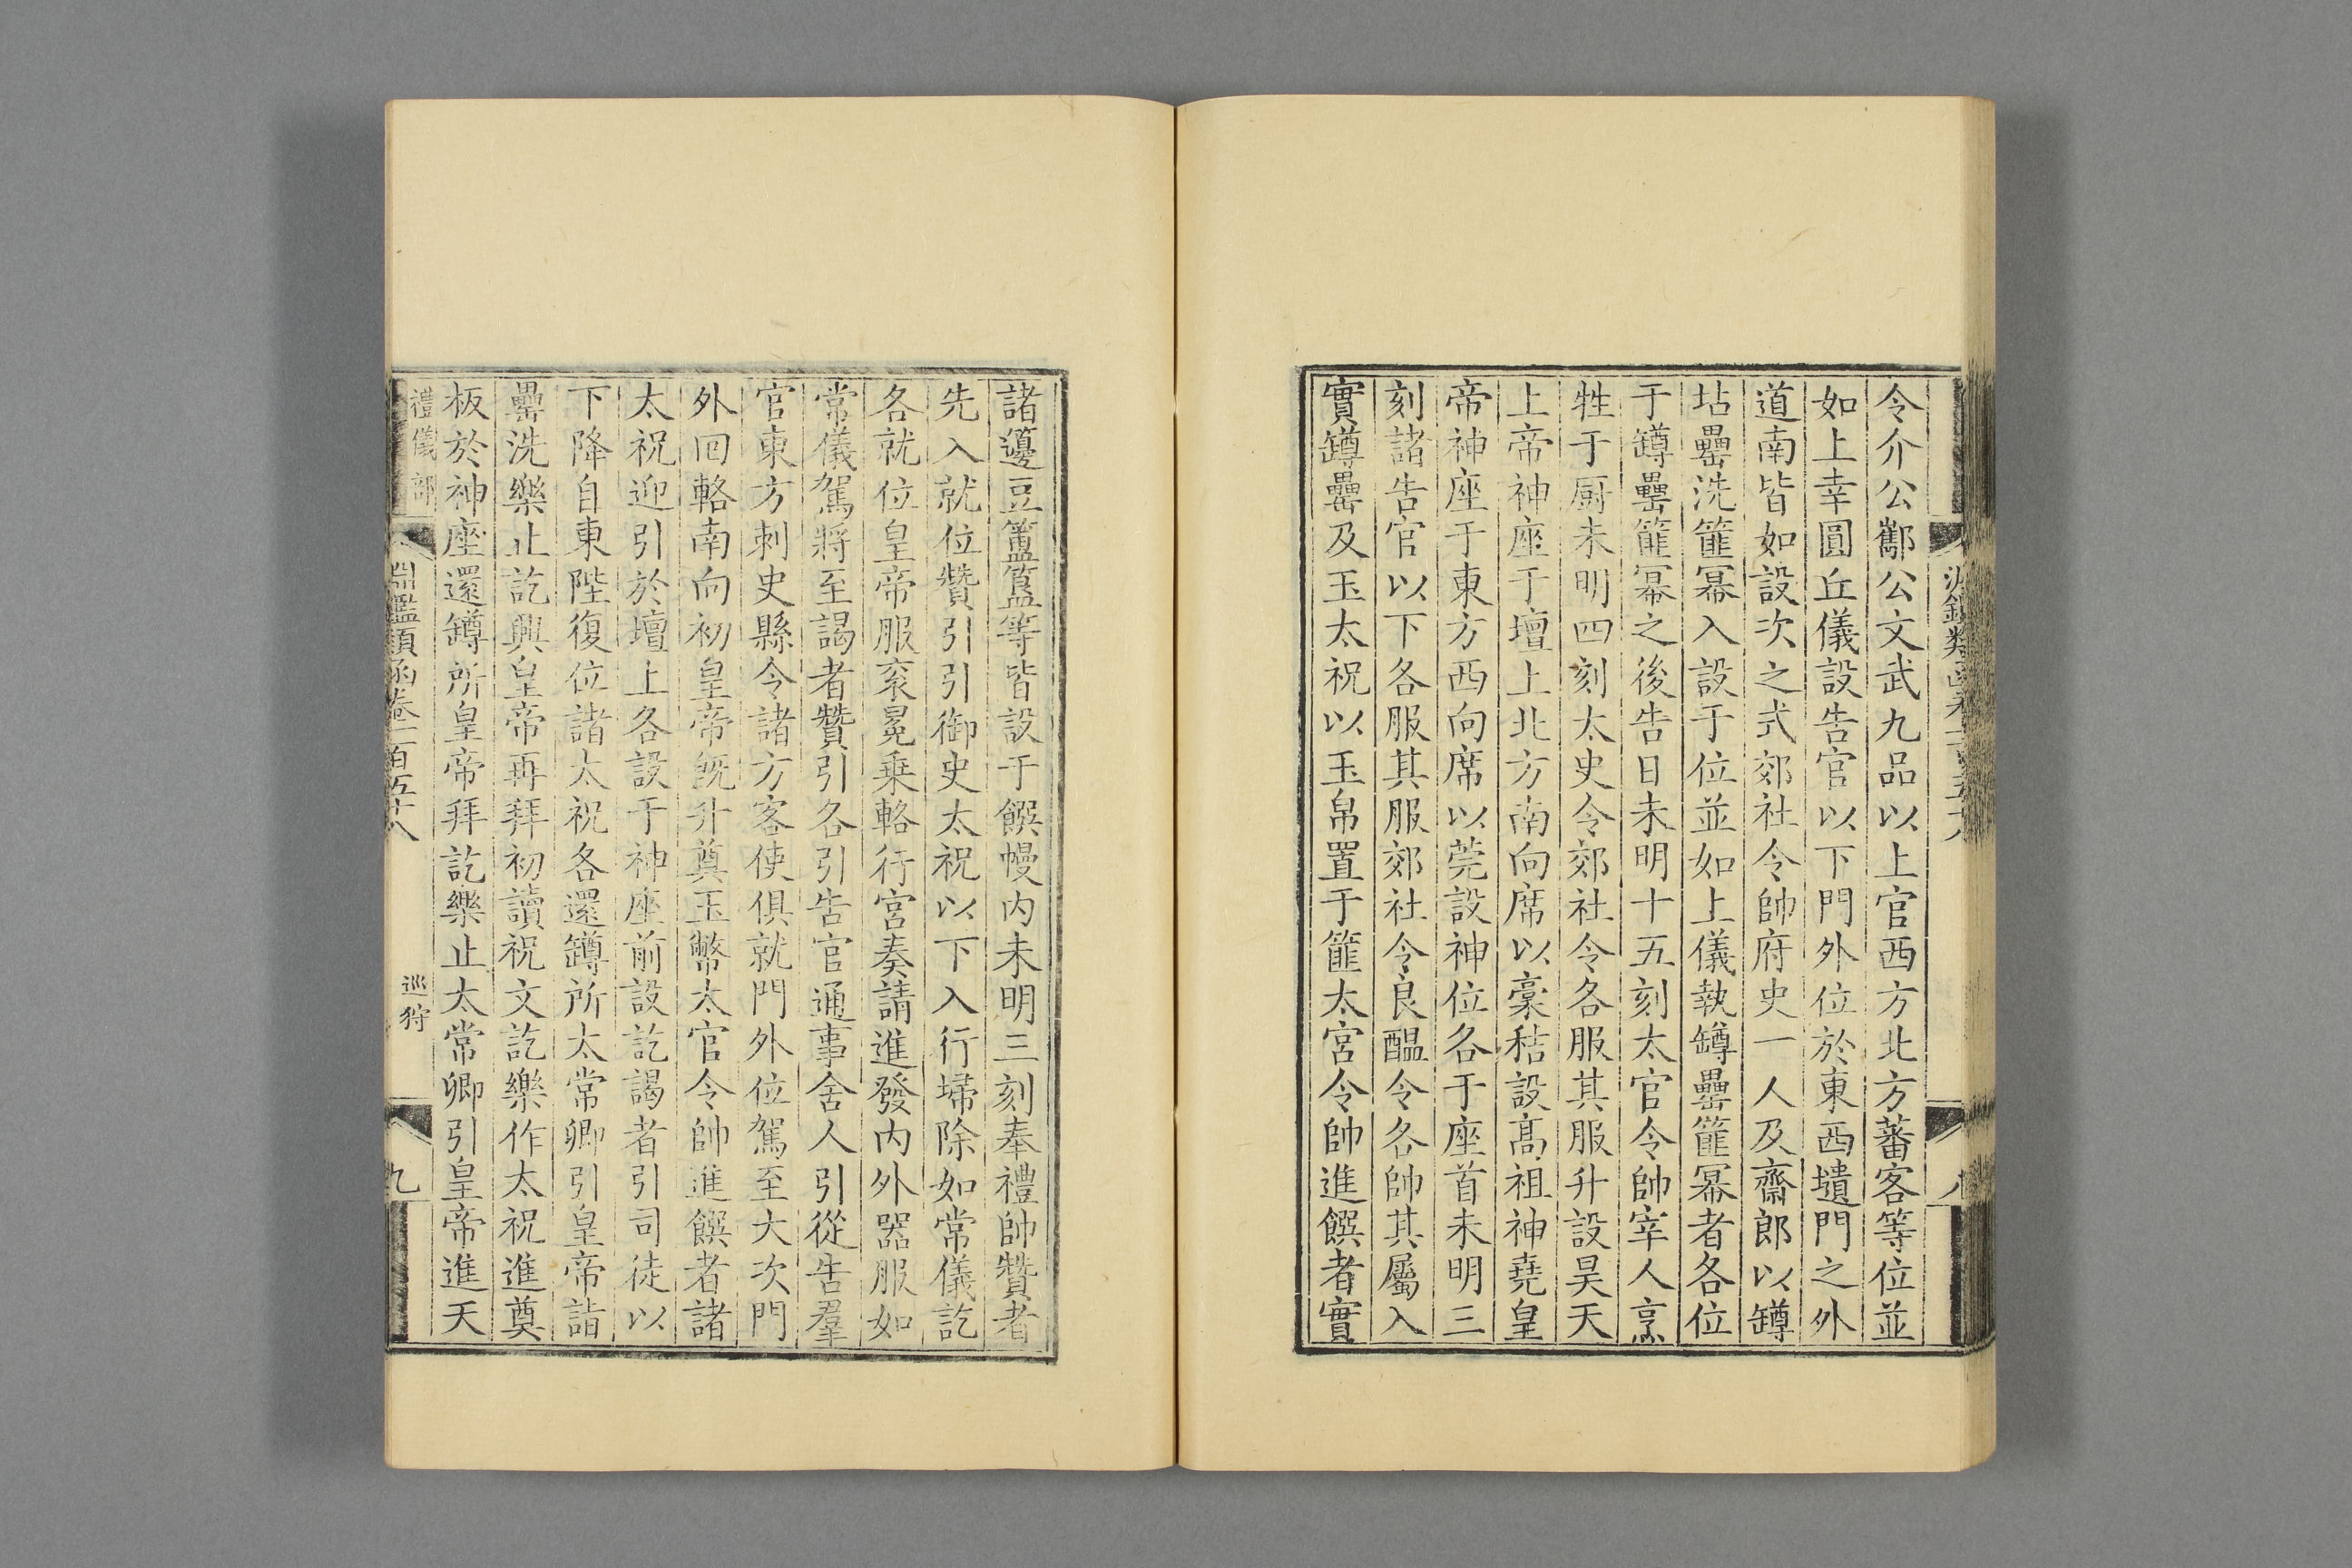 令介公酅公文武九品以上官西方北方蕃客等位並
如上幸圓丘儀設告官以下門外位於東西壝門之外
道南皆如設次之式郊社令帥府史一人及齋郎以罇
坫罍洗篚冪入設于位並如上儀執罇罍篚冪者各位
于罇罍篚冪之後告日未明十五刻太官令帥宰人烹
牲于厨未明四刻太史令郊社令各服其服升設昊天
上帝神座于壇上北方南向席以稾秸設髙祖神堯皇
帝神座于東方西向席以莞設神位各于座首未明三
刻諸告官以下各服其服郊社令良醖令各帥其屬入
實罇罍及玉太祝以玉帛置于篚太官令帥進饌者實
諸籩豆簠簋等皆設于饌幔内未明三刻奉禮帥贊者
先入就位贊引引御史太祝以下入行埽除如常儀訖
各就位皇帝服衮冕乗輅行宮奏請進發内外器服如
常儀駕將至謁者贊引各引告官通事舍人引從告羣
官東方刺史縣令諸方客使俱就門外位駕至大次門
外回輅南向初皇帝旣升奠玉幣太官令帥進饌者諸
太祝迎引於壇上各設于神座前設訖謁者引司徒以
下降自東陛復位諸太祝各還罇所太常卿引皇帝詣
罍洗樂止訖興皇帝再拜初讀祝文訖樂作太祝進奠
板於神座還罇所皇帝拜訖樂止太常卿引皇帝進天
禮儀部
淵鑑類函卷一百五十八
巡狩
九